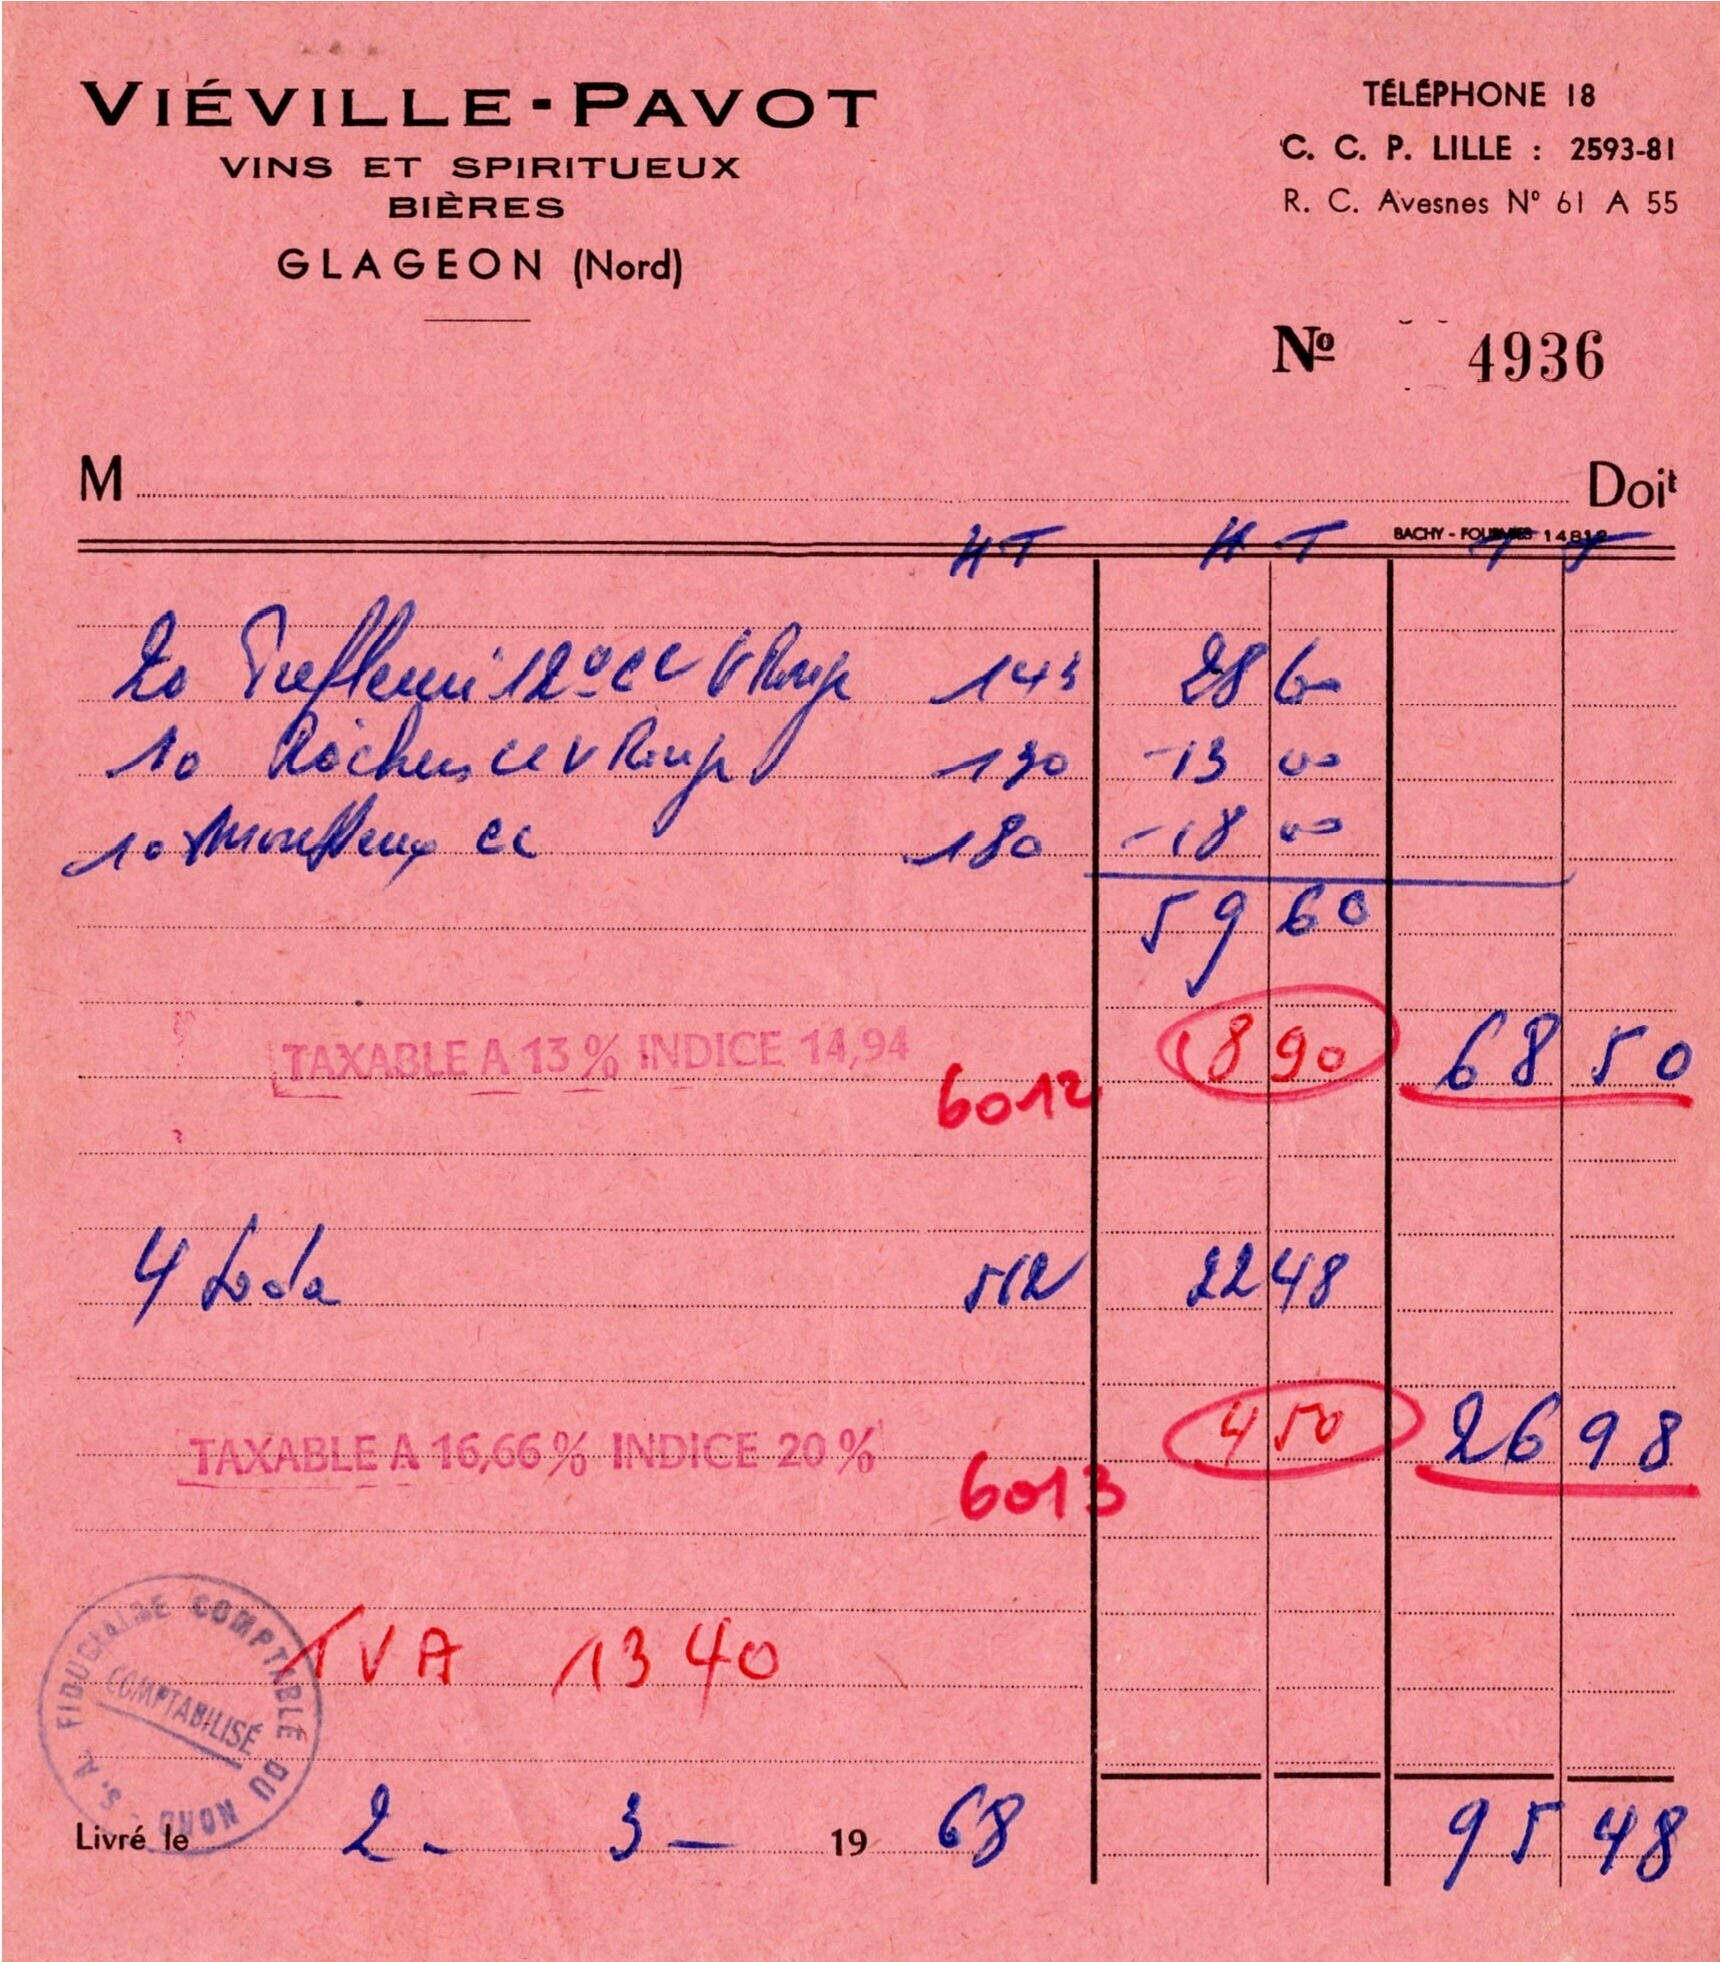 VIÉVILLE-PAVOT
VINS ET SPIRITUEUX
BIÈRES
GLAGEON (Nord)
TÉLÉPHONE 18
C. C. P. LILLE : 2593-81
R. C. Avesnes Nº 61 A 55
Nº 4936
M Doit
BACHY - FOURMIES
HT HT
20 12º cc V Rouge 143 28 60
10 Rochers cc V Rouge 130 -13 00
10 cc 180 -18 00
59 60
TAXABLE A 13% INDICE 14,94 8 90 68 50
6012
4 Soda 562 22 48
TAXABLE A 16,66% INDICE 20% 4 50 26 98
6013
TVA 13 40
S. A. FIDUCIAIRE COMPTABLE DU NORD
COMPTABILISÉ
Livré le 2 - 3 - 19 68 95 48